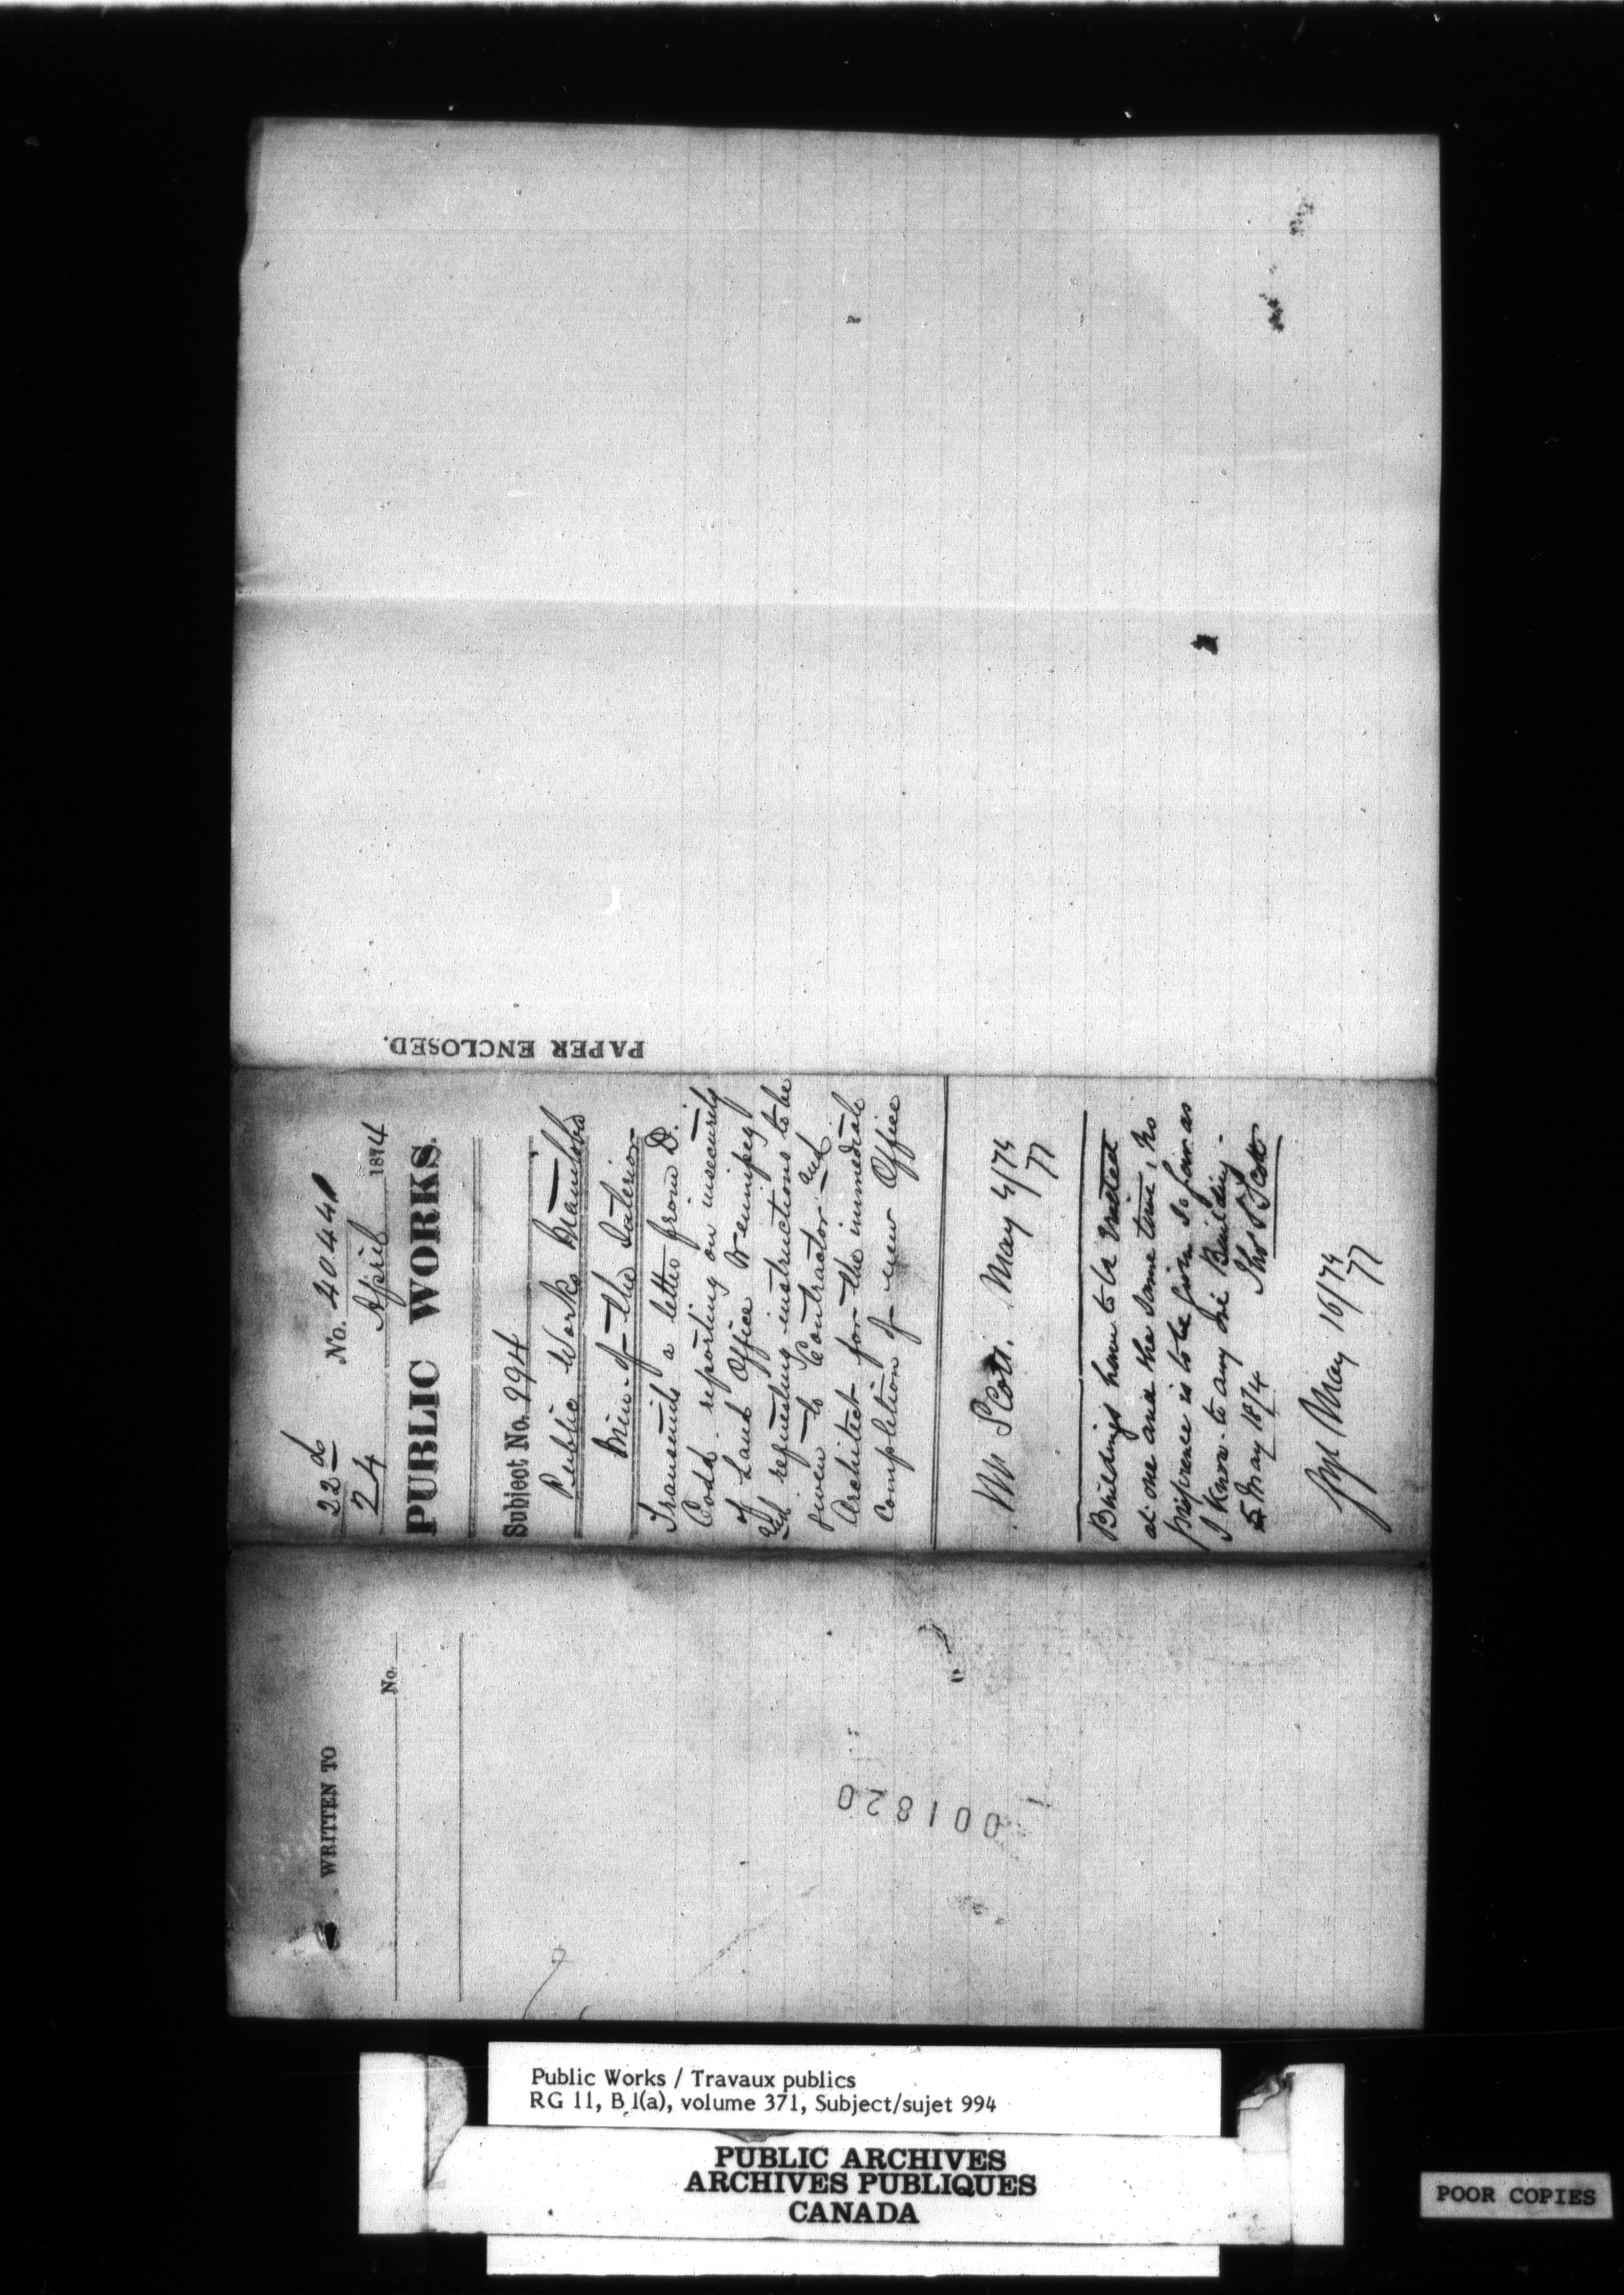 22d No. 40441
24 April 1874
PUBLIC WORKS.
Subject No. 994
Public Works Manitoba
Min. of the Interior
Transmits a letter from D.
Codd reporting on insecurity
of Land Office Winnipeg
and requesting instructions to be
given to Contractor and
Architect for the immediate
completion of new Office
Mr Scott. May 4/74
77
Buildings have to be erected
at one and the same time, no
preference is to be given so far as
I know to any one Building.
5 May 1874 Thos S Scott
May 16/74
77
PAPER ENCLOSED.
WRITTEN TO
No.
001820
Public Works / Travaux publics
RG 11, B 1(a), volume 371, Subject/sujet 994
PUBLIC ARCHIVES
ARCHIVES PUBLIQUES
CANADA
POOR COPIES